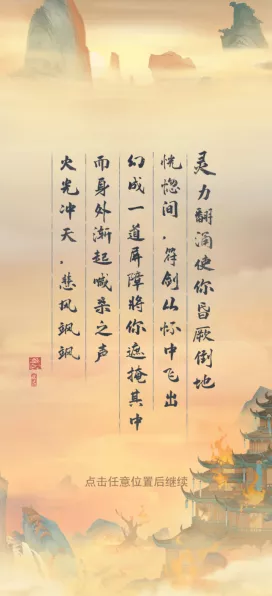 灵力翻涌使你昏厥倒地
恍惚间,符剑从怀中飞出
幻成一道屏障将你遮掩其中
而身外渐起喊杀之声
火光冲天,悲风飒飒
点击任意位置后继续